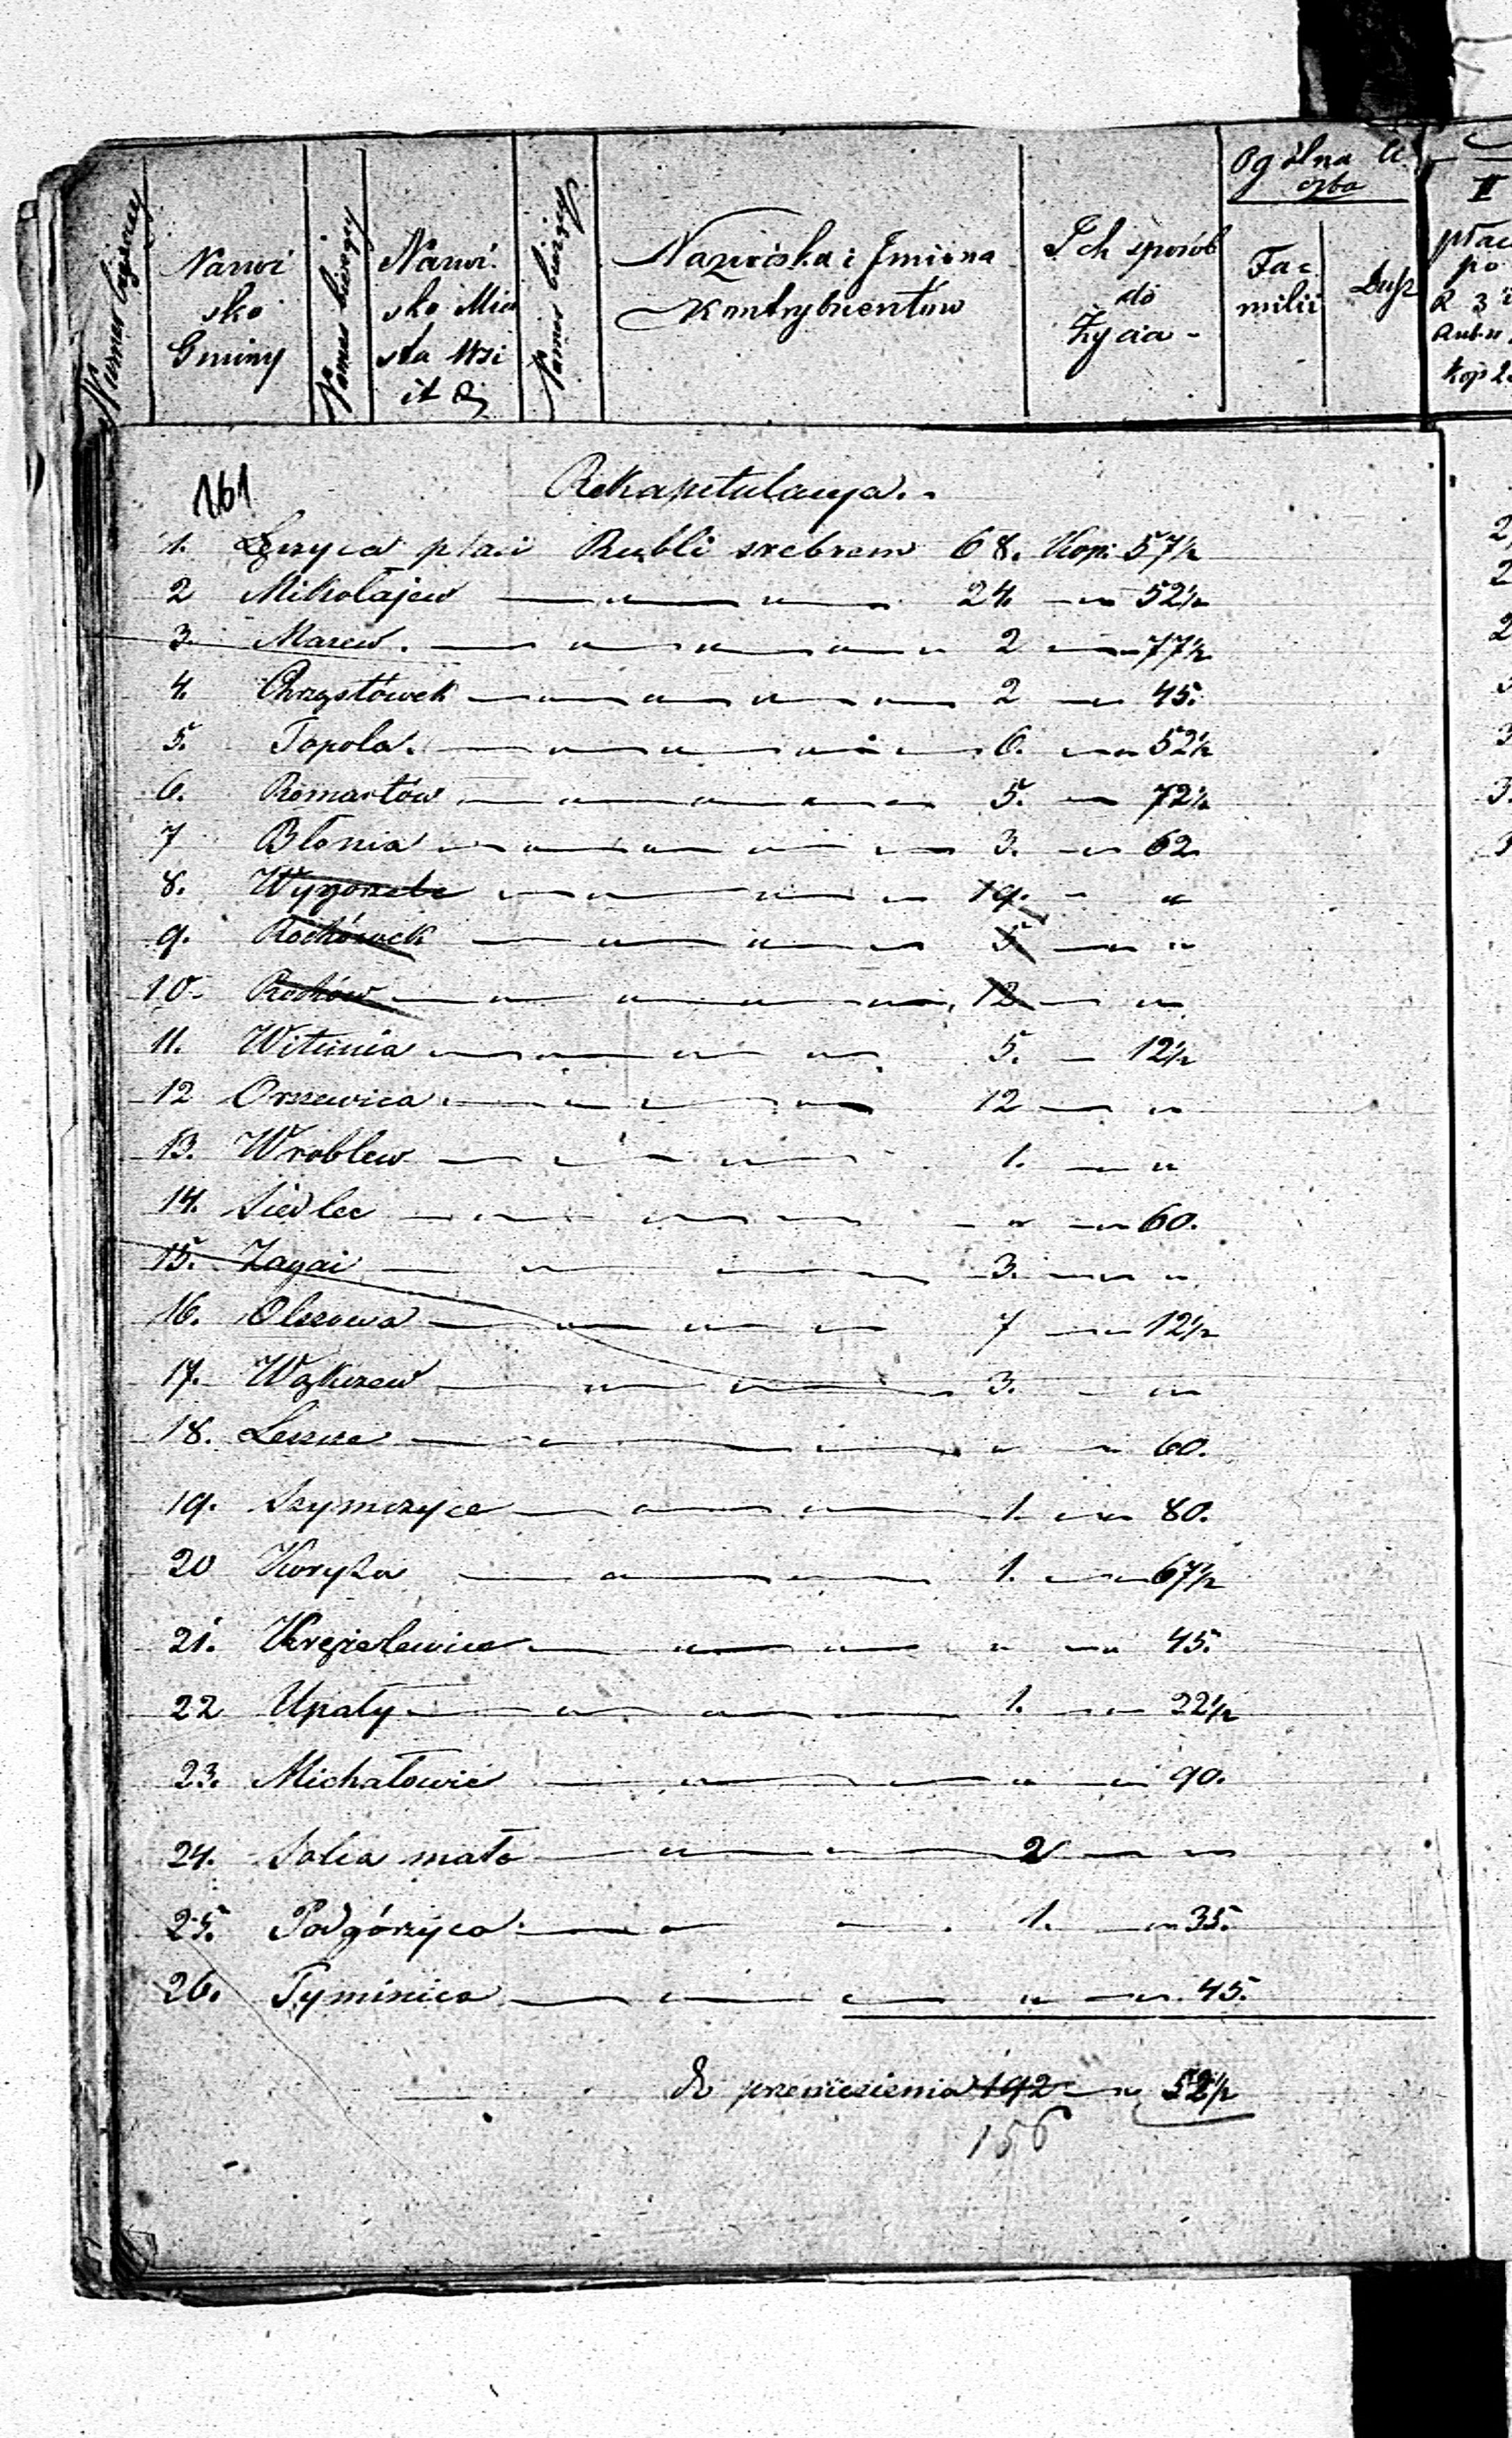 Numer bieżący
Nazwi
sko
Gminy
Numer bieżący
Nazwi
sko Mia
sta Wsi
it d
Numer bieżący
Nazwiska i Imiona
Kontrybuentów
Ich sposób
do
życia -
Ogólna li
czba
Fa=
milii
Dusz
II
płac
po
R 3
kop 2
161
Rekapitulacya. -
1. Łęczyca płaci Rubli srebrem 68. Kop: 57½
2 Mikołajew — „ — „ — 24 — „ 52½
3. Marew. — „ — „ — „ — „ 2 — „ 77½
4. Chrząstówek — „ — „ — „ — „ 2 — „ 45.
5. Topola. — „ — „ — „ — 6. — „ 52½
6. Romartów — „ — „ — „ — 5. — „ 72½
7 Błonia — „ — „ — „ — 3. — „ 62
8. Wygorzele — „ — „ — „ 19. - „
9. Rochówek — „ — „ — „ 5 — „ „
10. Rochów — „ — „ — „ — 12 — „
11. Witunia — „ — „ — „ 5. — 12½
12 Orszewica — „ — „ — „ 12 — „
13. Wroblew — „ — „ — 1. — „ „
14. Siedlec — „ — „ — „ - „ — „ 60.
15. Zagai — „ — — 3. — „ „
16. Olszowa — „ — „ — „ 7 — „ 12½
17. — „ — „ — 3. - „
18. Leszcze — „ — „ — „ „ 60.
19. Szymczyce — „ — „ — 1. — „ 80.
20 Koryta — „ — „ — 1. — „ 67½
21. — „ — „ — „ — „ 45.
22 Upały — „ — „ — 1. — „ 22½
23. Michałowic — „ — „ — „ — „ 90.
24. Solca mała — „ — „ — 2 — „
25. Podgórzyce — „ — „ . 1. — „ 35.
26. Tyminica — „ — „ — „ — „ 45.
do przeniesienia 192 — „ 52½
156